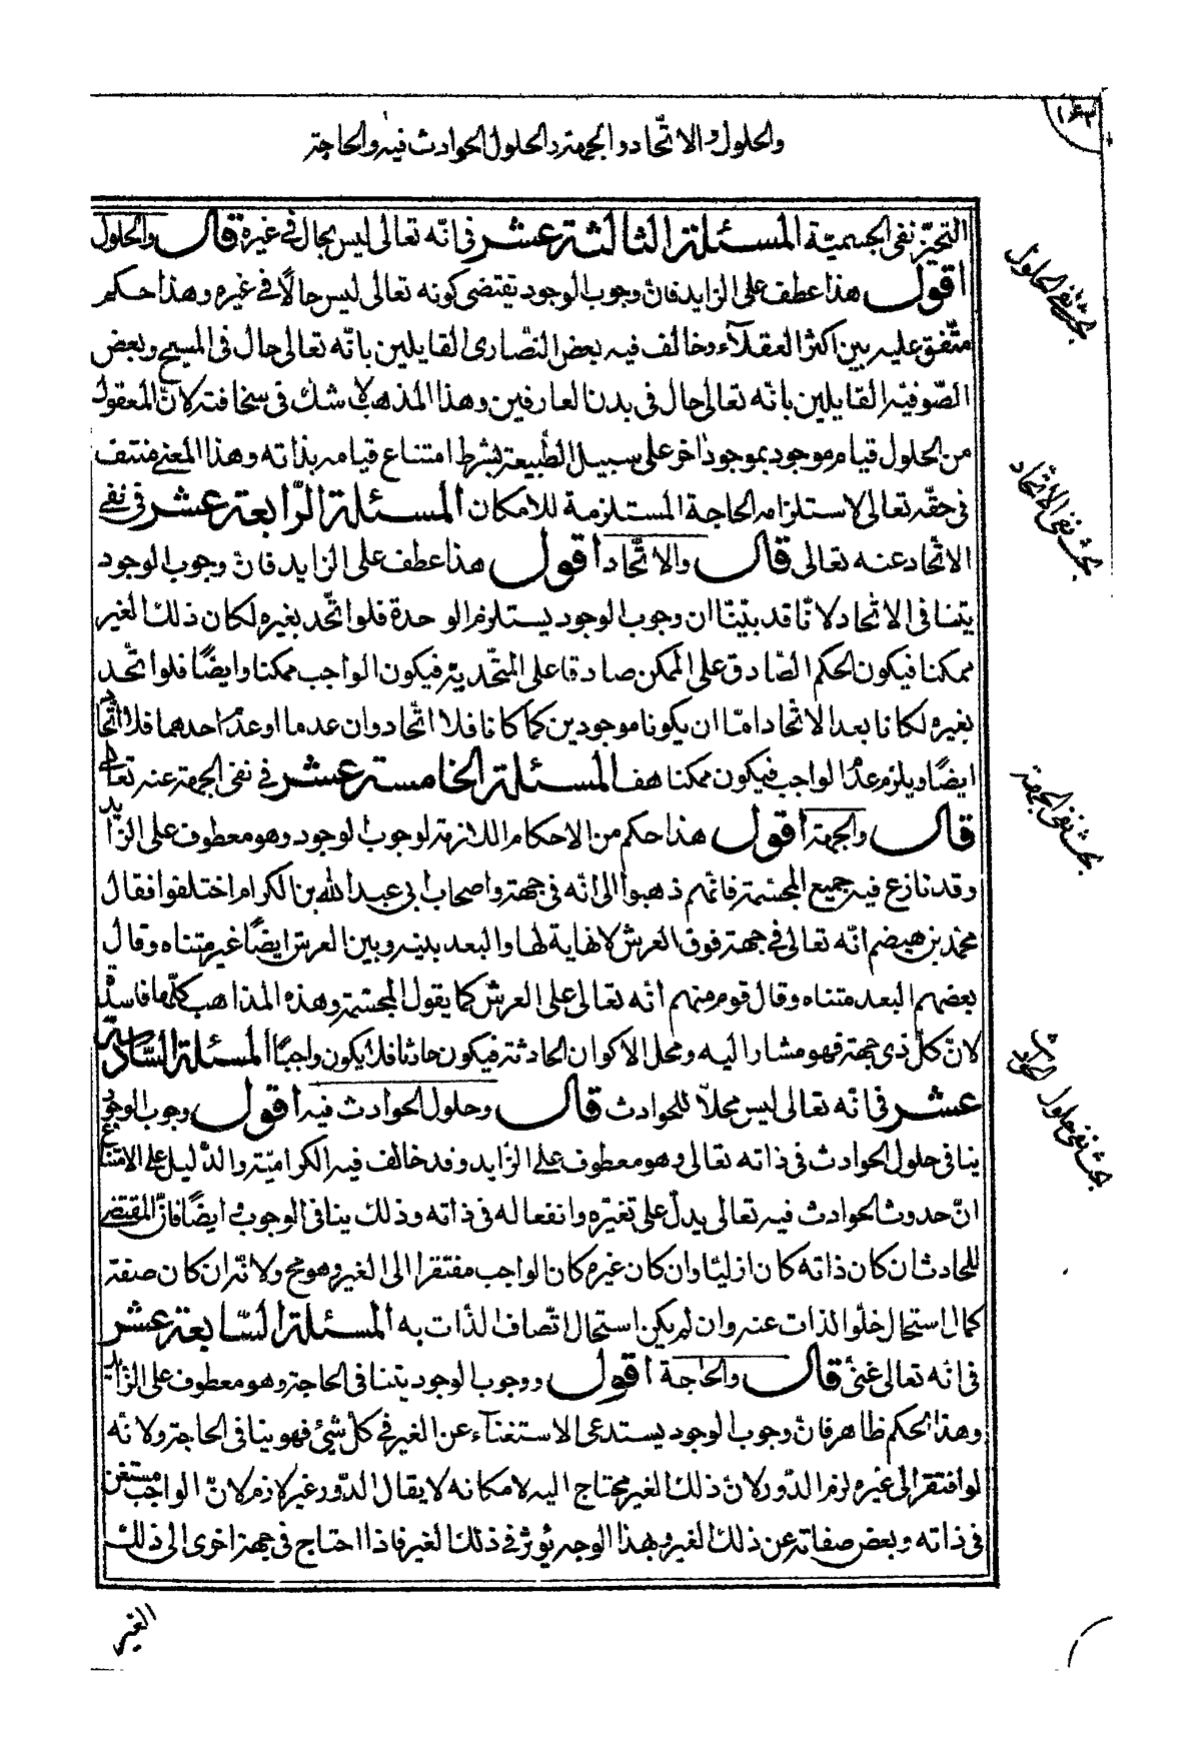 ١٦٢
والحلول والاتّحاد والجهة والحلول الحوادث فيه والحاجة
التحيّز نفى الجسميّة المسئلة الثالثة عشر فى انّه تعالى ليس بحال فى غيره قال والحلول
اقول هذا عطف على الزايد فانّ وجوب الوجود يقتضى كونه تعالى ليس حالاً فى غيره وهذا حكم
متّفق عليه بين اكثر العقلآء وخالف فيه بعض النّصارى القايلين بانّه تعالى حال فى المسيح وبعض
الصّوفيّة القايلين بانّه تعالى حال فى بدن العارفين وهذا المذهب لا شك فى سخافته لانّ المعقول
من الحلول قيام موجود بموجود اخر على سبيل الطّبيعة بشرط امتناع قيامه بذاته وهذا المعنى منتف
فى حقّه تعالى لاستلزامه الحاجة المستلزمة للامكان المسئلة الرّابعة عشر فى نفى
الاتّحاد عنه تعالى قال والاتّحاد اقول هذا عطف على الزايد فانّ وجوب الوجود
يتنافى الاتّحاد لانّا قد بيّنّا ان وجوب الوجود يستلزم الوحدة فلو اتّحد بغيره لكان ذلك الغير
ممكنا فيكون الحكم الصّادق على الممكن صادقا على المتّحد به فيكون الواجب ممكنا وايضًا فلو اتّحد
بغيره لكانا بعد الاتّحاد امّا ان يكونا موجودين كما كانا فلا اتّحاد وان عدما او عدم احدهما فلا اتّحاد
ايضًا ويلزم عدم الواجب فيكون ممكنا هف المسئلة الخامسة عشر فى نفى الجهة عنه تعالى
قال والجهة اقول هذا حكم من الاحكام اللازمة لوجوب الوجود وهو معطوف على الزايد
وقد نازع فيه جميع المجسّمة فانّهم ذهبوا الى انّه فى جهة واصحاب ابى عبد الله بن الكرام اختلفوا فقال
محمّد بن هيضم انّه تعالى فى جهة فوق العرش لا نهاية لها والبعد بينه وبين العرش ايضًا غير متناه وقال
بعضهم البعد متناه وقال قوم منهم انّه تعالى على العرش كما يقول المجسّمة وهذه المذاهب كلّها فاسدة
لانّ كلّ ذى جهة فهو مشار اليه ومحل الاكوان الحادثة فيكون حادثا فلا يكون واجبًا المسئلة السّادسة
عشر فى انّه تعالى ليس محلاّ للحوادث قال وحلول الحوادث فيه اقول وجوب الوجود
ينافى حلول الحوادث فى ذاته تعالى وهو معطوف على الزايد وقد خالف فيه الكراميّة والدّليل على الامتناع
انّ حدوث الحوادث فيه تعالى يدلّ على تغيّره وانفعاله فى ذاته وذلك ينافى الوجوب وايضًا فانّ المقتضى
للحادث ان كان ذاته كان ازليّا وان كان غيره كان الواجب مفتقرا الى الغير وهو مح ولانّه ان كان صفة
كمال استحال خلّو الذات عنه وان لم يكن استحال اتّصاف الذّات به المسئلة السّابعة عشر
فى انّه تعالى غنىّ قال والحاجة اقول ووجوب الوجود يتنافى الحاجة وهو معطوف على الزايد
وهذا الحكم ظاهر فانّ وجوب الوجود يستدعى الاستغنآء عن الغير فى كلّ شىء فهو ينافى الحاجة ولانّه
لو افتقر الى غيره لزم الدّور لانّ ذلك الغير محتاج اليه لامكانه لا يقال الدّور غير لازم لانّ الواجب مستغن
فى ذاته وبعض صفاته عن ذلك الغير وبهذا الوجه يؤثّر فى ذلك الغير فاذا احتاج فى جهة اخرى الى ذلك
الغير
بحث نفى الحلول
بحث نفى الاتّحاد
بحث نفى الجهة
بحث نفى حلول الحوادث